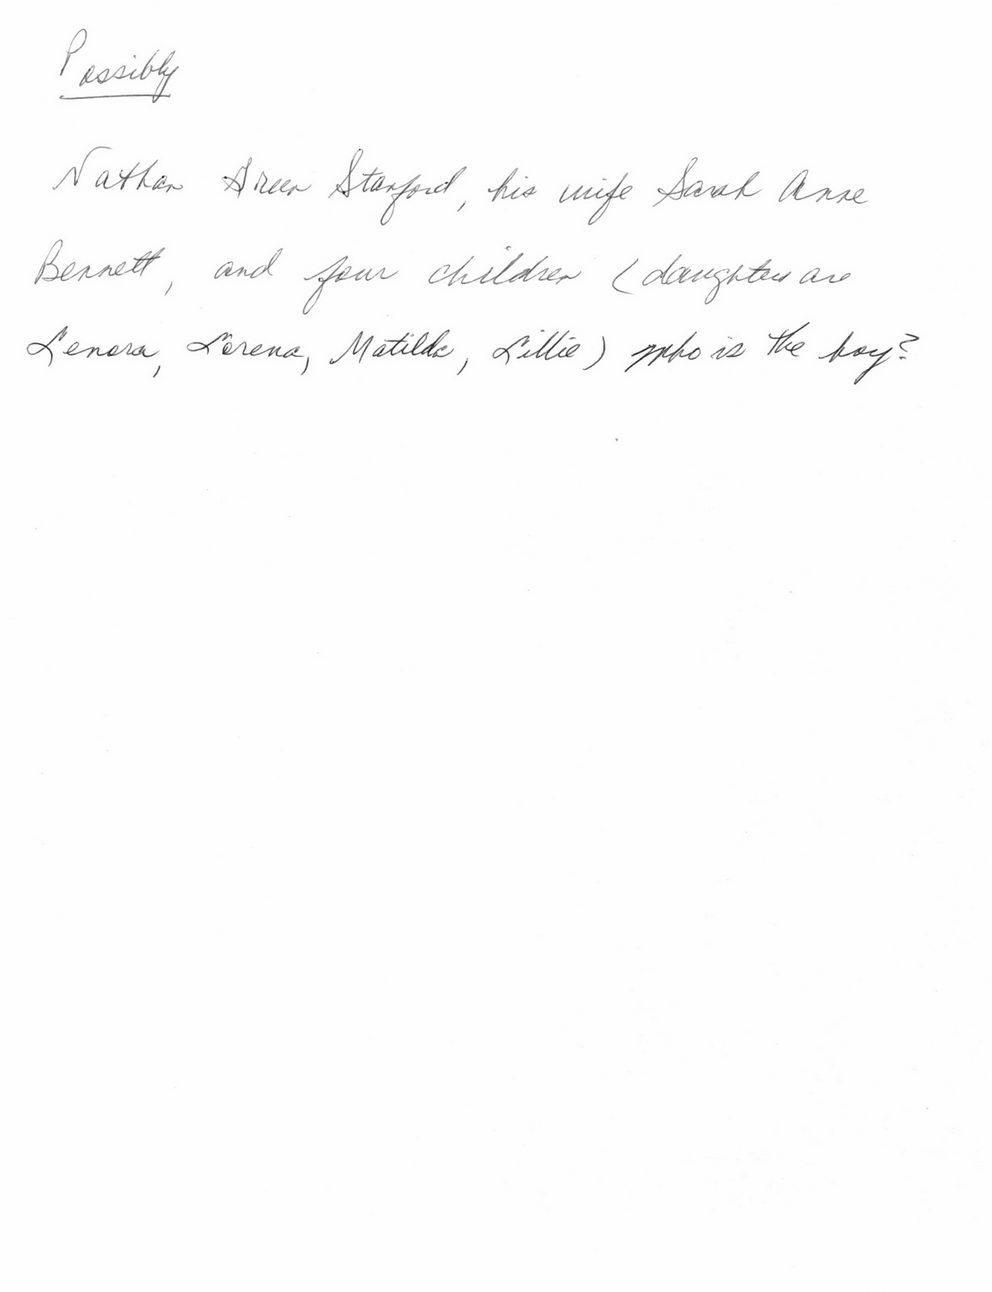 Possibly
Nathan Green Stanford, his wife Sarah Anne
Bennett, and four children (daughters are
Lenora, Lorena, Matilda, Lillie) who is the boy?